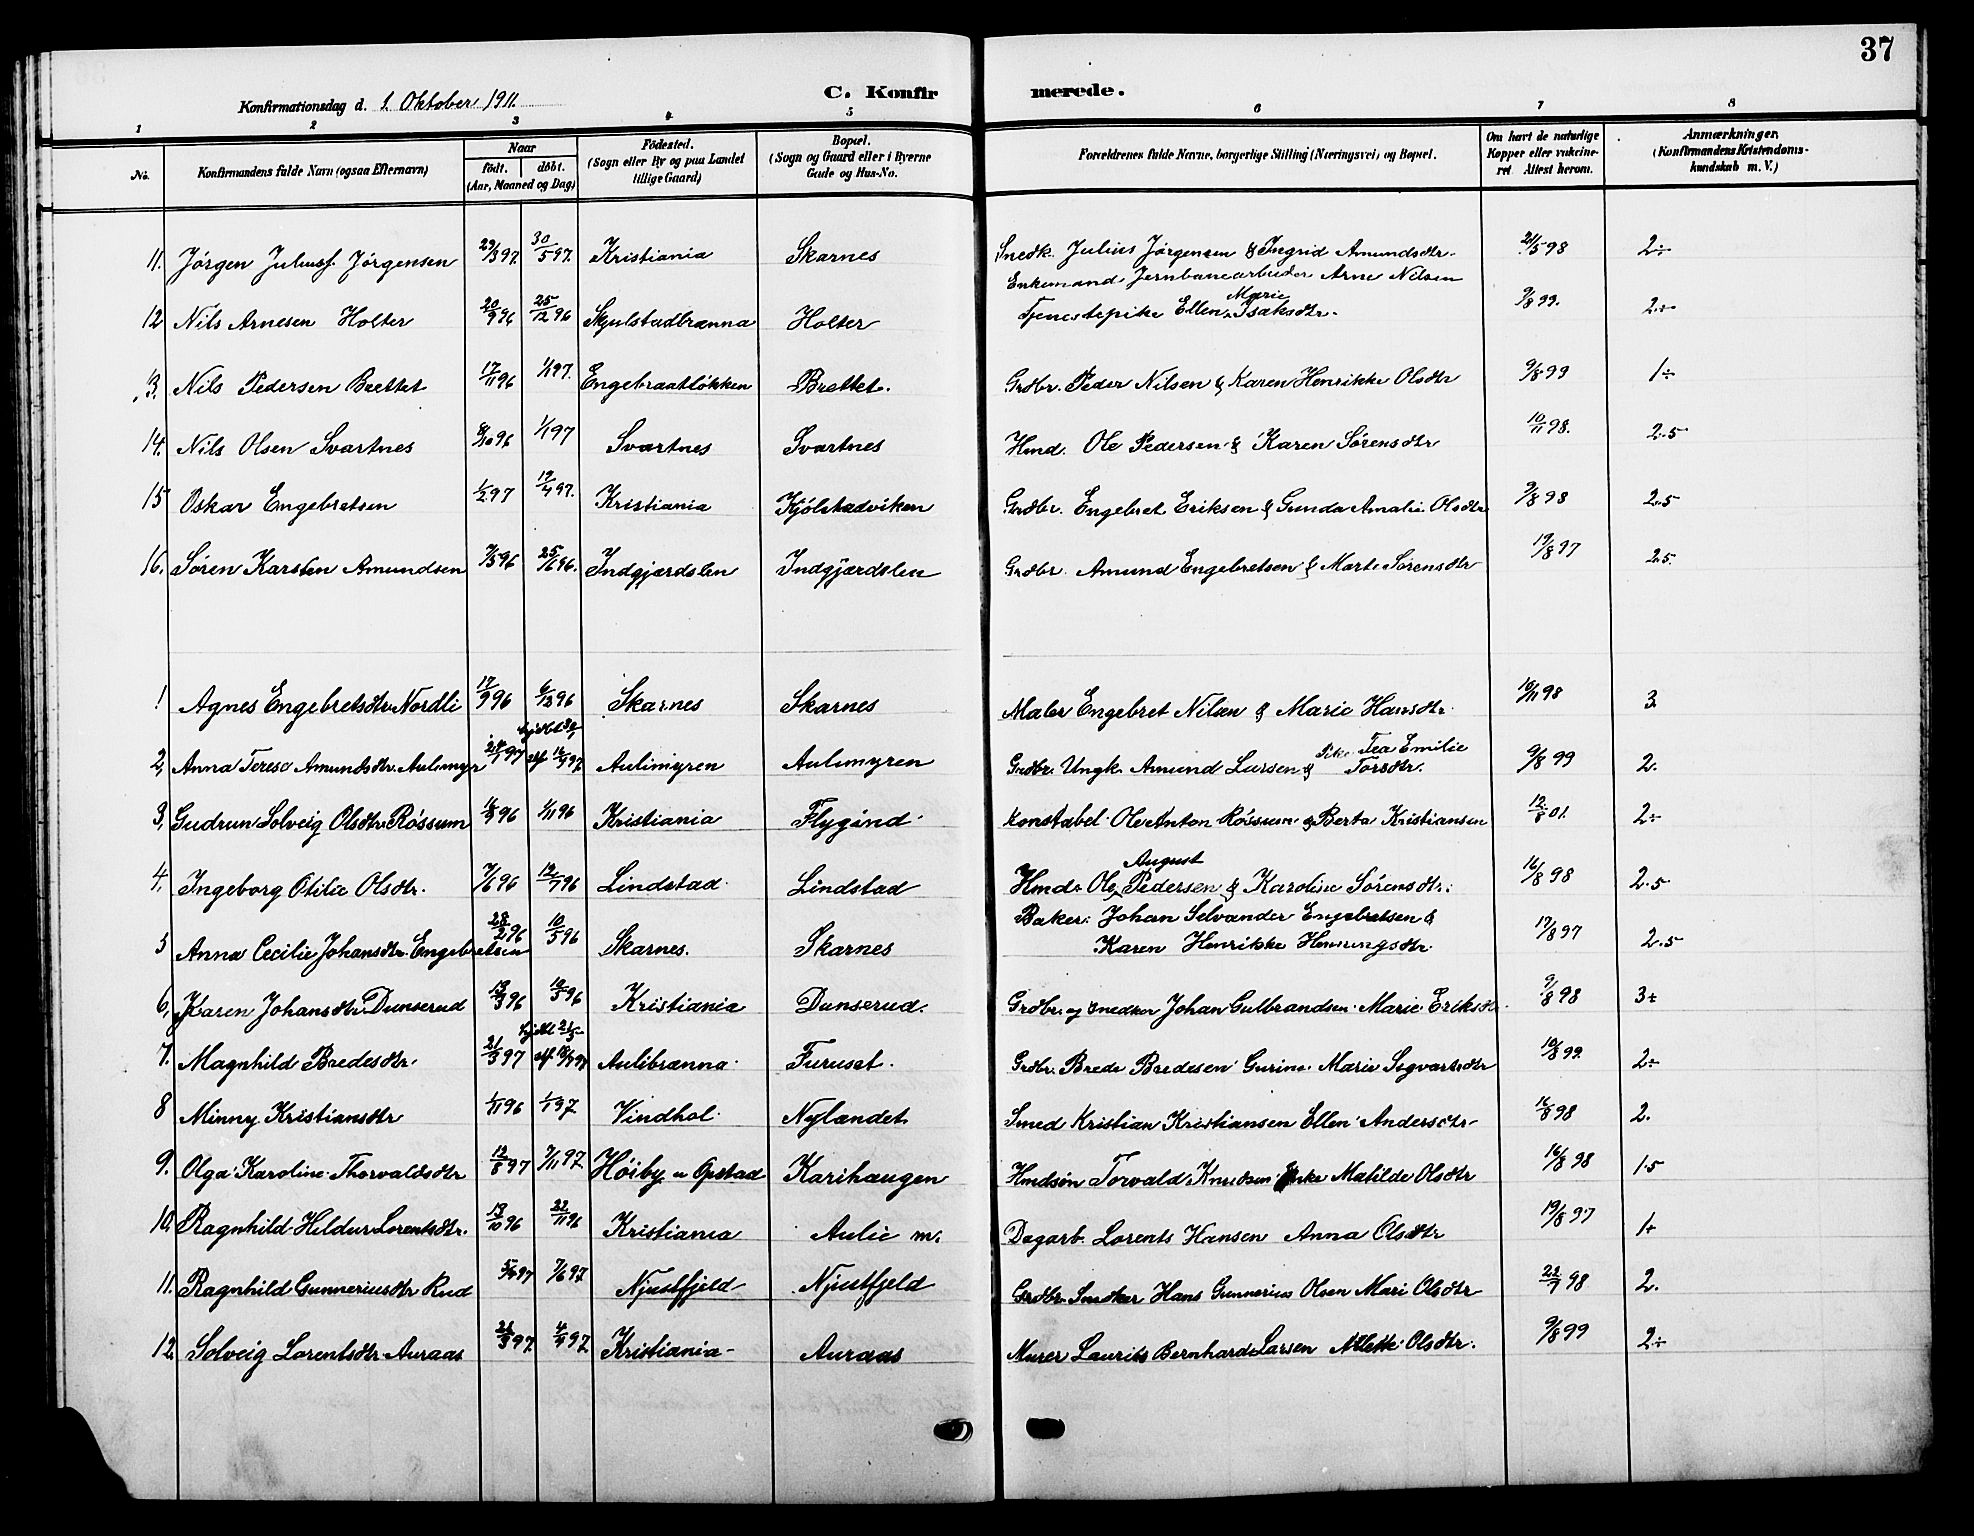 37
Konfirmationsdag d. 1. Oktober 1911.
C. Konfirmerede.
1 2 3 4 5 6 7 8
No.
Konfirmandens fulde Navn (ogsaa Efternavn)
Naar
födt. döbt.
(Aar, Maaned og Dag)
Födested.
(Sogn eller By og paa Landet
tillige Gaard)
Bopæl.
(Sogn og Gaard eller i Byerne
Gade og Hus-No.
Forældrenes fulde Navne, borgerlige Stilling (Næringsvei) og Bopæl.
Om havt de naturlige
Kopper eller vakcine-
ret. Attest herom.
Anmærkninger.
(Konfirmandens Kristendoms-
kundskab m. V.)
11. Jörgen Juliusf. Jörgensen 29/3 97. 30/5 97. Kristiania Skarnes Snedk. Julius Jörgensen & Ingrid Amundsdtr. 21/5 98 2÷
Enkemand Jernbanearbeider Arne Nilsen
12 Nils Arnesen Holter 20/9 96 25/12 96 Skjulstadbrænna Holter Tjenestepike Ellen Marie Isaksdtr. 9/8 99. 2÷
13. Nils Pedersen Brettet 17/11 96 1/1 97. Engebraatløkken Brettet. Grdbr. Peder Nilsen & Karen Henrikke Olsdtr 9/8 99 1÷
14. Nils Olsen Svartnes 8/10 96 1/1 97 Svartnes Svartnes Hmd. Ole Pedersen & Karen Sörensdtr 10/11 98. 2.5
15 Oskar Engebretsen 1/2 97 19/4 97. Kristiania Kjölstadviken Grdbr. Engebret Eriksen & Gunda Amalie Olsdtr 9/8 98 2.5
16. Sören Karsten Amundsen 7/5 96 25/6 96. Indgjærdslen Indgjærdslen Grdbr. Amund Engebretsen & Marte Sörensdtr 19/8 97 2.5.
1 Agnes Engebretsdtr. Nordli 17/9 96 6/12 96 Skarnes Skarnes Maler Engebret Nilsen & Marie Hansdtr. 16/11 98 3.
2, Anna Terese Amundsdtr. Aulimyr 24/1 97 Aulimyren Aulimyren Grdbr. Ungk. Amund Larsen & Pike Tea Emilie Torsdtr. 9/8 99 2.
3, Gudrun Solveig Olsdtr. Røssum 16/8 96 1/11 96 Kristiania Flygind Konstabel Ole Anton Røssum & Berta Kristiansen 12/8 01. 2÷
4, Ingeborg Otilie Olsdtr. 7/6 96 12/7 96 Lindstad Lindstad Hmd. Ole August Pedersen & Karoline Sörensdtr. 16/8 98 2.5
5 Anna Cecilie Johansdtr. Engebretsen 28/2 96 10/5 96 Skarnes. Skarnes Baker Johan Selvander Engebretsen &
Karen Henrikke Henningsdtr. 17/8 97 2.5
6, Karen Johansdtr. Dunserud 18/3 96 10/5 96 Kristiania Dunserud. Grdbr. og Snedker Johan Gulbrandsen Marie Eriksdtr. 9/8 98 3+
7. Magnhild Bredesdtr. 21/3 97 Aulibrænna Furuset. Grdbr. Brede Bredesen Gurine Marie Sigvartsdtr 10/8 99. 2÷
8 Minny Kristiansdtr 1/11 96 1/1 97. Vindhol Nylandet. Smed Kristian Kristiansen Ellen Andersdtr 16/8 98 2.
9. Olga Karoline Thorvaldsdtr 12/8 97 7/11 97. Höiby u Opstad Karihaugen Hmdsön Torvald Knudsen Matilde Olsdtr 16/8 98 1.5
10. Ragnhild Hildur Lorentsdtr. 13/10 96 22/11 96 Kristiania Aulie m. Dagarb. Lorents Hansen Anna Olsdtr 19/8 97 1+
11. Ragnhild Gunneriusdtr Rud 5/4 97 7/6 97. Njustfjeld Njustfjeld Grdbr. Snedker Hans Gunnerius Olsen Mari Olsdtr 22/7 98 2.
12. Solveig Lorentsdtr Auraas 21/3 97. 4/4 97. Kristiania Auraas Murer Laurits Bernhard Larsen Alette Olsdtr. 9/8 99 2÷